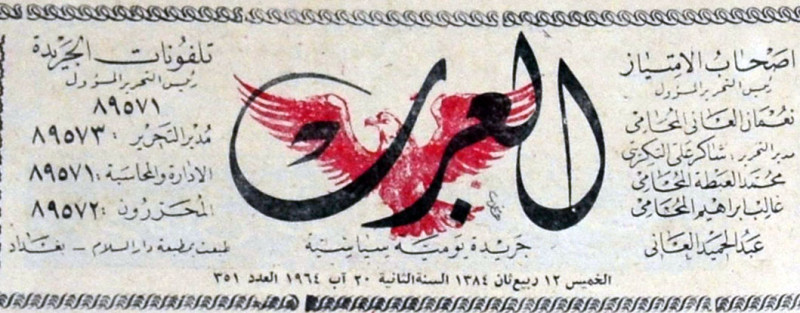 اصحاب الامتياز
رئيس التحرير المسؤول
نعمان العاني المحامي
مدير التحرير : شاكر علي التكريتي
محمد العبطة المحامي
غالب ابراهيم المحامي
عبد الحميد العاني
العرب
جريدة يومية سياسية
تلفونات الجريدة
رئيس التحرير المسؤول
٨٩٥٧١
مدير التحرير : ٨٩٥٧٣
الادارة والمحاسبة : ٨٩٥٧١
المحررون : ٨٩٥٧٢
طبعت بمطبعة دار السلام – بغداد
الخميس ١٢ ربيع ثان ١٣٨٤ السنة الثانية ٢٠ آب ١٩٦٤ العدد ٣٥١